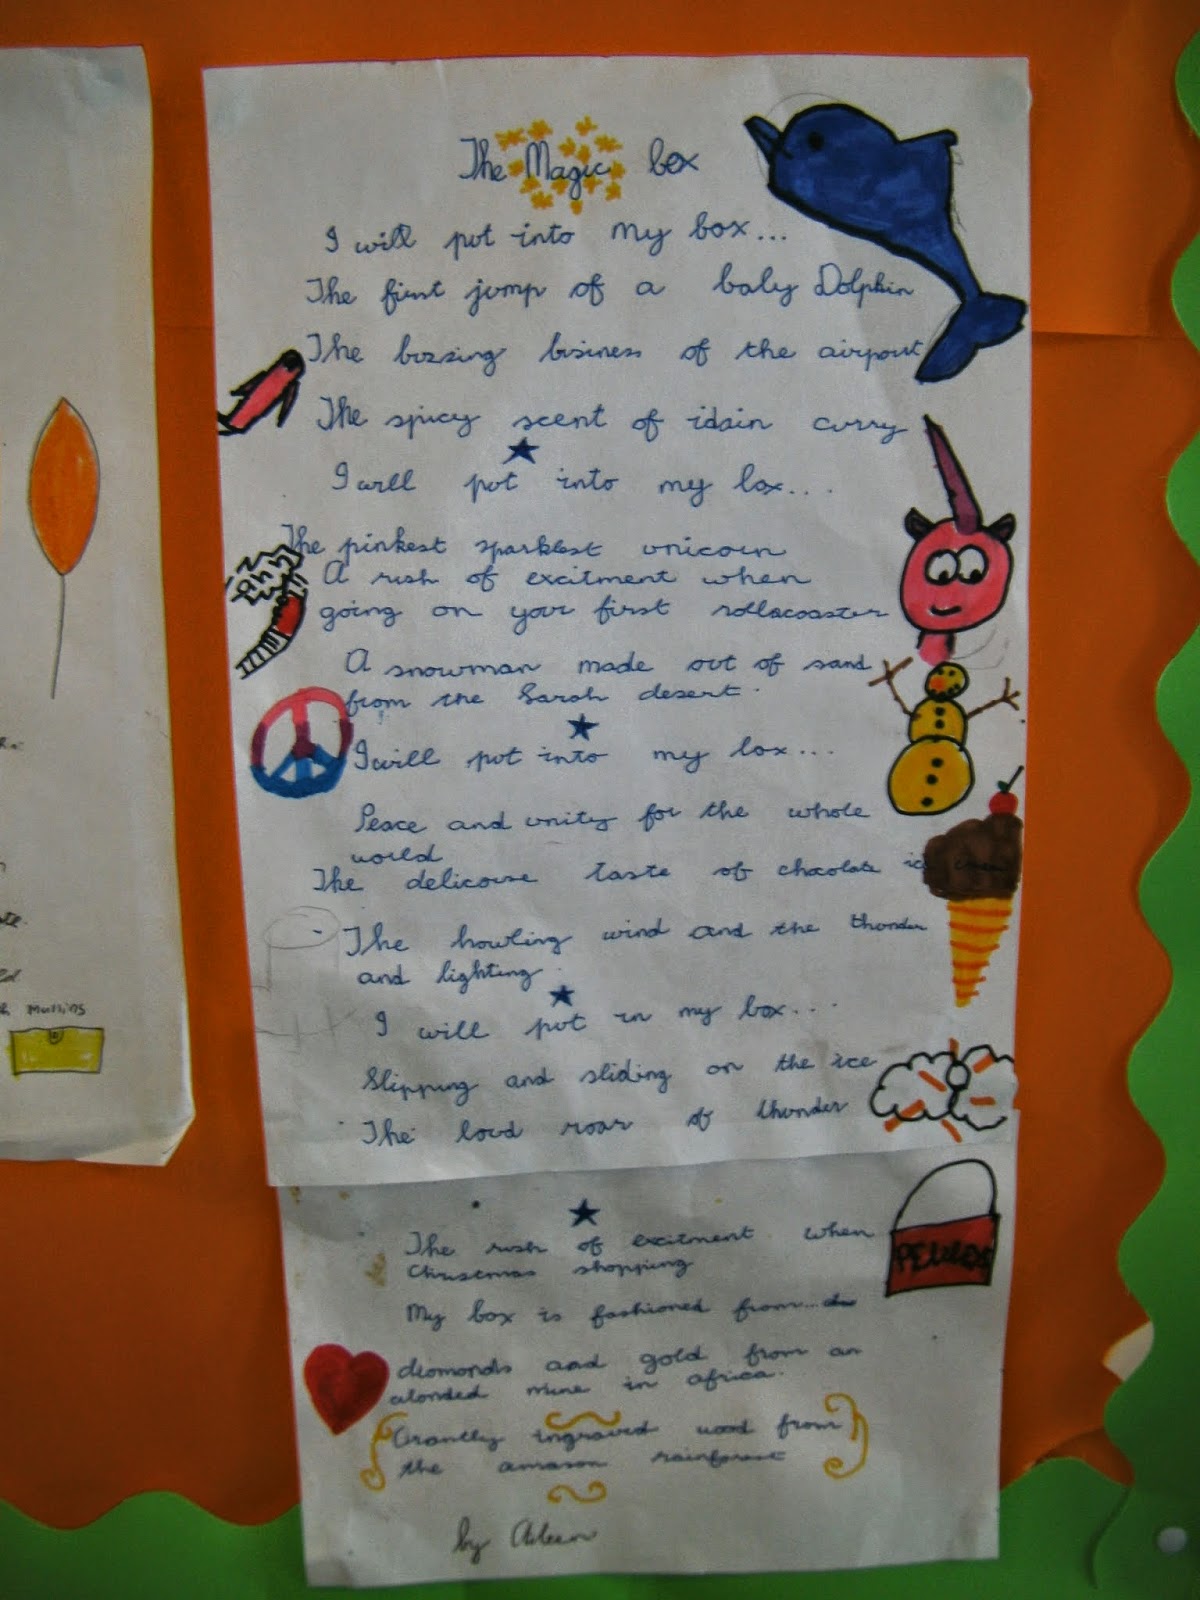 The Magic box
I will put into my box...
The first jump of a baby Dolphin
The buzzing business of the airport
The spicy scent of idain curry
I will put into my box...
The pinkest sparklest unicorn
A rush of excitment when
going on your first rollacoaster
A snowman made out of sand
from the Sarah desert.
I will put into my box...
Peace and unity for the whole
world
The delicouse taste of chocolate ice cream
The howling wind and the thunder
and lighting.
I will put in my box...
Slipping and sliding on the ice
The loud roar of thunder
The rush of excitment when
Christmas shopping
PENNEYS
My box is fashioned from...
diomonds and gold from an
mine in africa.
ingraved wood from
the amazon rainforest
by Aileen
Mullins